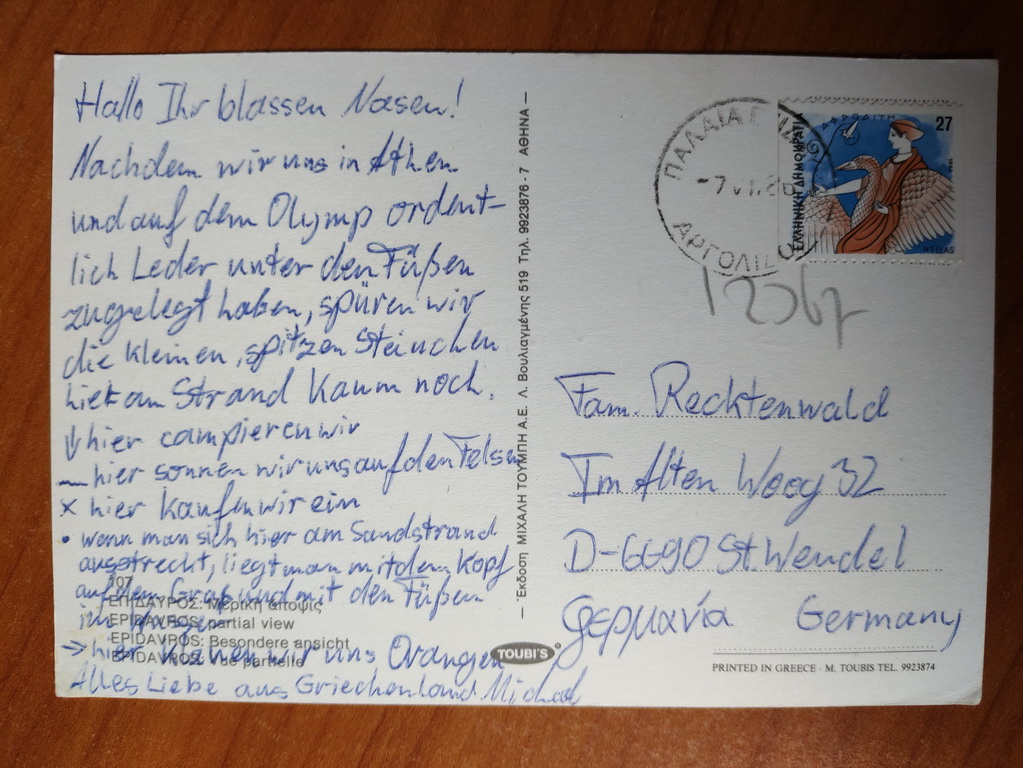 Hallo Ihr blassen Nasen!
Nachdem wir uns in Athen
und auf dem Olymp ordent-
lich Leder unter den Füßen
zugelegt haben, spüren wir
die kleinen, spitzen Steinchen
hier am Strand kaum noch.
↓ hier campieren wir
— hier sonnen wir uns auf den Felsen
× hier kaufen wir ein
• wenn man sich hier am Sandstrand
ausstreckt, liegt man mit dem Kopf
auf dem Gras und mit den Füßen
im
→ hier klauen wir uns Orangen
Alles Liebe aus Griechenland Michael
107
ΕΠΙΔΑΥΡΟΣ: Μερική άποψις
EPIDAVROS: partial view
EPIDAVROS: Besondere ansicht
EPIDAVROS: Vue partielle
Έκδοση ΜΙΧΑΛΗ ΤΟΥΜΠΗ Α.Ε. Λ. Βουλιαγμένης 519 Τηλ. 9923876-7 ΑΘΗΝΑ
TOUBI'S
ΠΑΛΑΙΑ
-7 VI. 86
ΑΡΓΟΛΙΔΟ
ΑΦΡΟΔΙΤΗ
27
ΕΛΛΗΝΙΚΗ ΔΗΜΟΚΡΑΤΙΑ
HELLAS
Fam. Recktenwald
Im Alten Woog 32
D-6690 St. Wendel
Γερμανία Germany
PRINTED IN GREECE - M. TOUBIS TEL. 9923874